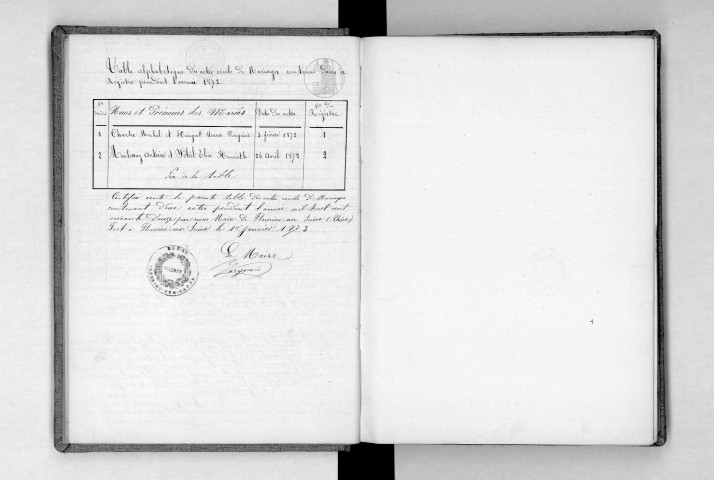 Table alphabétique des actes civils de Mariage contenus dans ce
Registre pendant l'année 1872.
Nos d'ordre Noms et Prénoms des Mariés Date des actes No du Registre
1 Charles Michel et 3 février 1872 1
2 Antoine et Vidal 26 Avril 1872 2
Fin de la table
Certifiée exacte la présente table des actes civils de Mariages
contenant deux actes pendant l'année mil huit cent
soixante Douze par nous Maire de Fleurieu sur Saône (Rhône)
Fait à Fleurieu sur Saône le 1er janvier 1873
Le Maire
RHONE
MAIRIE